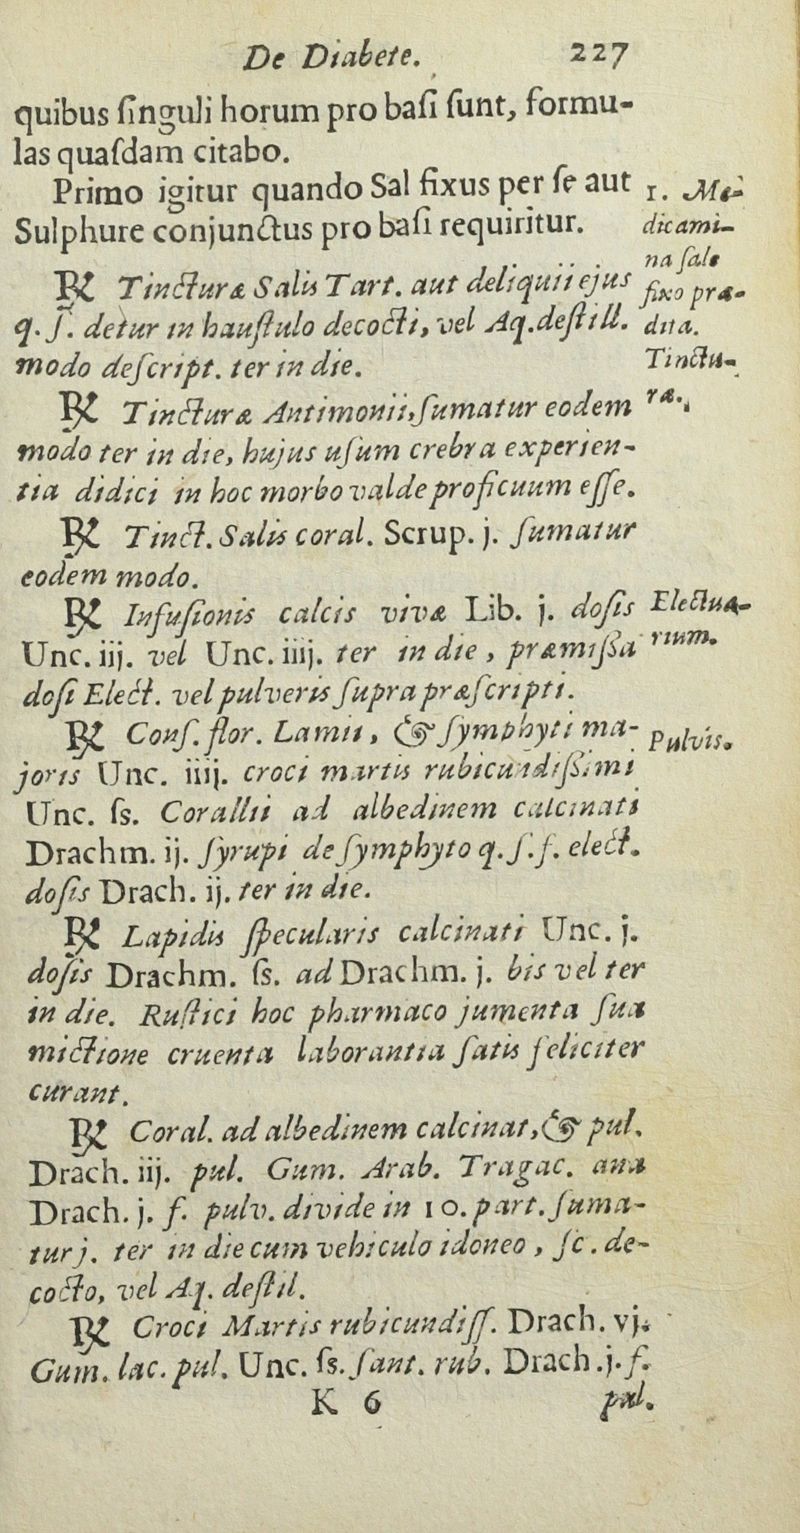 De Diabete. 227
quibus ſinguli horum pro baſi ſunt, formu-
las quaſdam citabo.
Primo igitur quando Sal fixus per ſe aut
Sulphure conjunctus pro baſi requiritur.
1. Me-
dicami-
na ſale
fixo præ-
dita.
Tinctu-
ræ.
℞ Tincturæ Salis Tart. aut deliquii ejus
q. ſ. detur in hauſtulo decocti, vel Aq. deſtill.
modo deſcript. ter in die.
℞ Tincturæ Antimonii, ſumatur eodem
modo ter in die, hujus uſum crebra experien-
tia didici in hoc morbo valde proficuum eſſe.
℞ Tinct. Salis coral. Scrup. j. ſumatur
eodem modo.
℞ Infuſionis calcis vivæ Lib. j. doſis
Unc. iij. vel Unc. iiij. ter in die, præmiſſa
doſi Elect. vel pulveris ſupra præſcripti.
Electua-
rium.
℞ Conſ. flor. Lamii, & ſymphyti ma-
joris Unc. iiij. croci martis rubicundiſſimi
Unc. ſs. Corallii ad albedinem calcinati
Drachm. ij. ſyrupi de ſymphyto q. ſ. f. elect.
doſis Drach. ij. ter in die.
Pulvis.
℞ Lapidis ſpecularis calcinati Unc. j.
doſis Drachm. ſs. ad Drachm. j. bis vel ter
in die. Ruſtici hoc pharmaco jumenta ſua
mictione cruenta laborantia ſatis feliciter
curant.
℞ Coral. ad albedinem calcinat, & pul.
Drach. iij. pul. Gum. Arab. Tragac. ana
Drach. j. f. pulv. divide in 10. part. ſuma-
tur j. ter in die cum vehiculo idoneo, ſc. de-
cocto, vel Aq. deſtil.
℞ Croci Martis rubicundiſſ. Drach. vj.
Gum. lac. pul. Unc. ſs. ſant. rub. Drach. j. f.
K 6 pul.